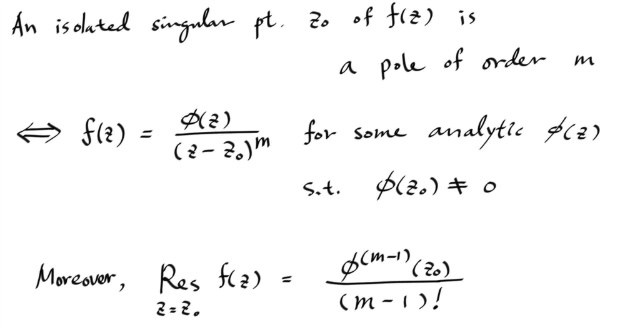 An isolated singular pt. z₀ of f(z) is
a pole of order m
⟺ f(z) = φ(z) / (z - z₀)^m for some analytic φ(z)
s.t. φ(z₀) ≠ 0
Moreover, Res_{z=z₀} f(z) = φ^(m-1)(z₀) / (m-1)!